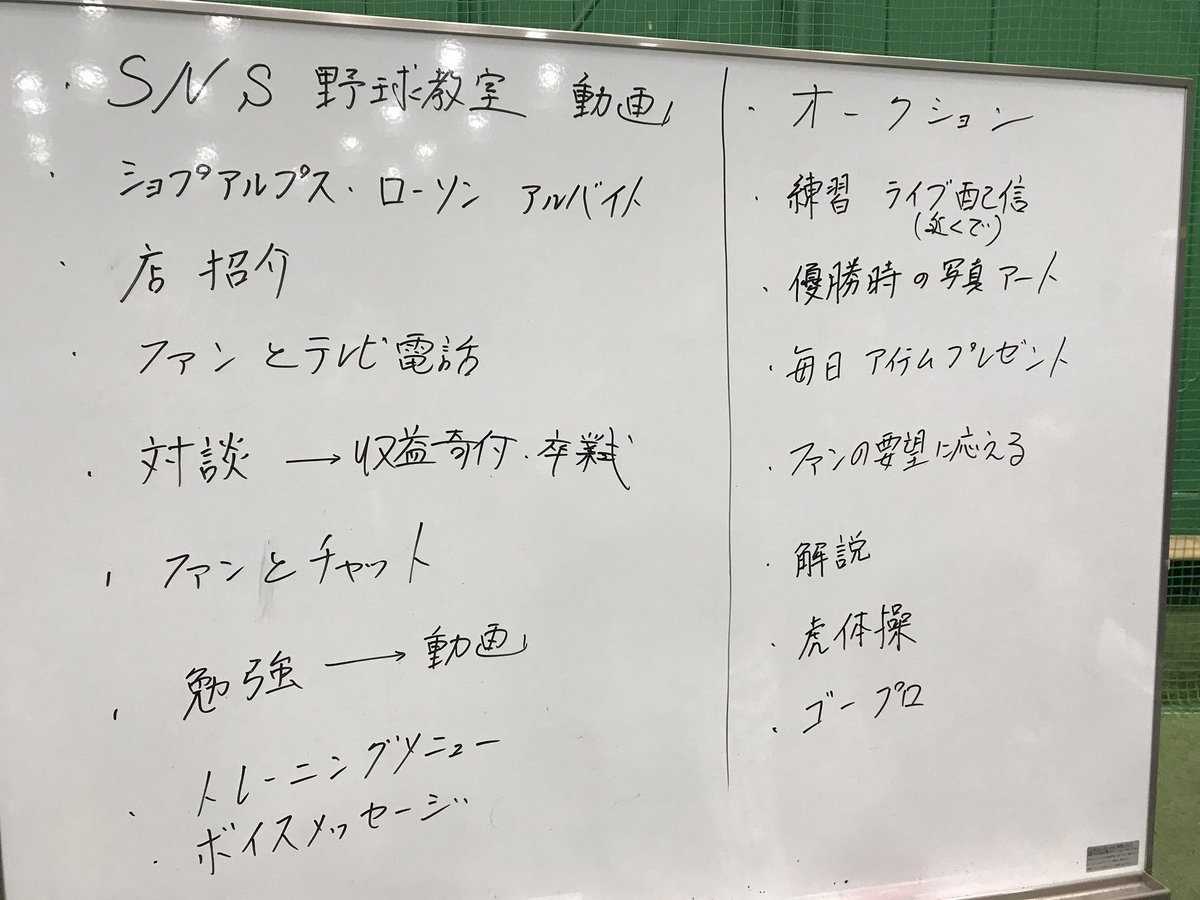 ・SNS 野球教室 動画
・ショプアルプス・ローソン アルバイト
・店 招介
・ファンとテレビ電話
・対談 → 収益寄付・卒業式
・ファンとチャット
・勉強 → 動画
・トレーニングメニュー
・ボイスメッセージ
・オークション
・練習 ライブ配信
(近くで)
・優勝時の写真アート
・毎日 アイテムプレゼント
・ファンの要望に応える
・解説
・虎体操
・ゴープロ